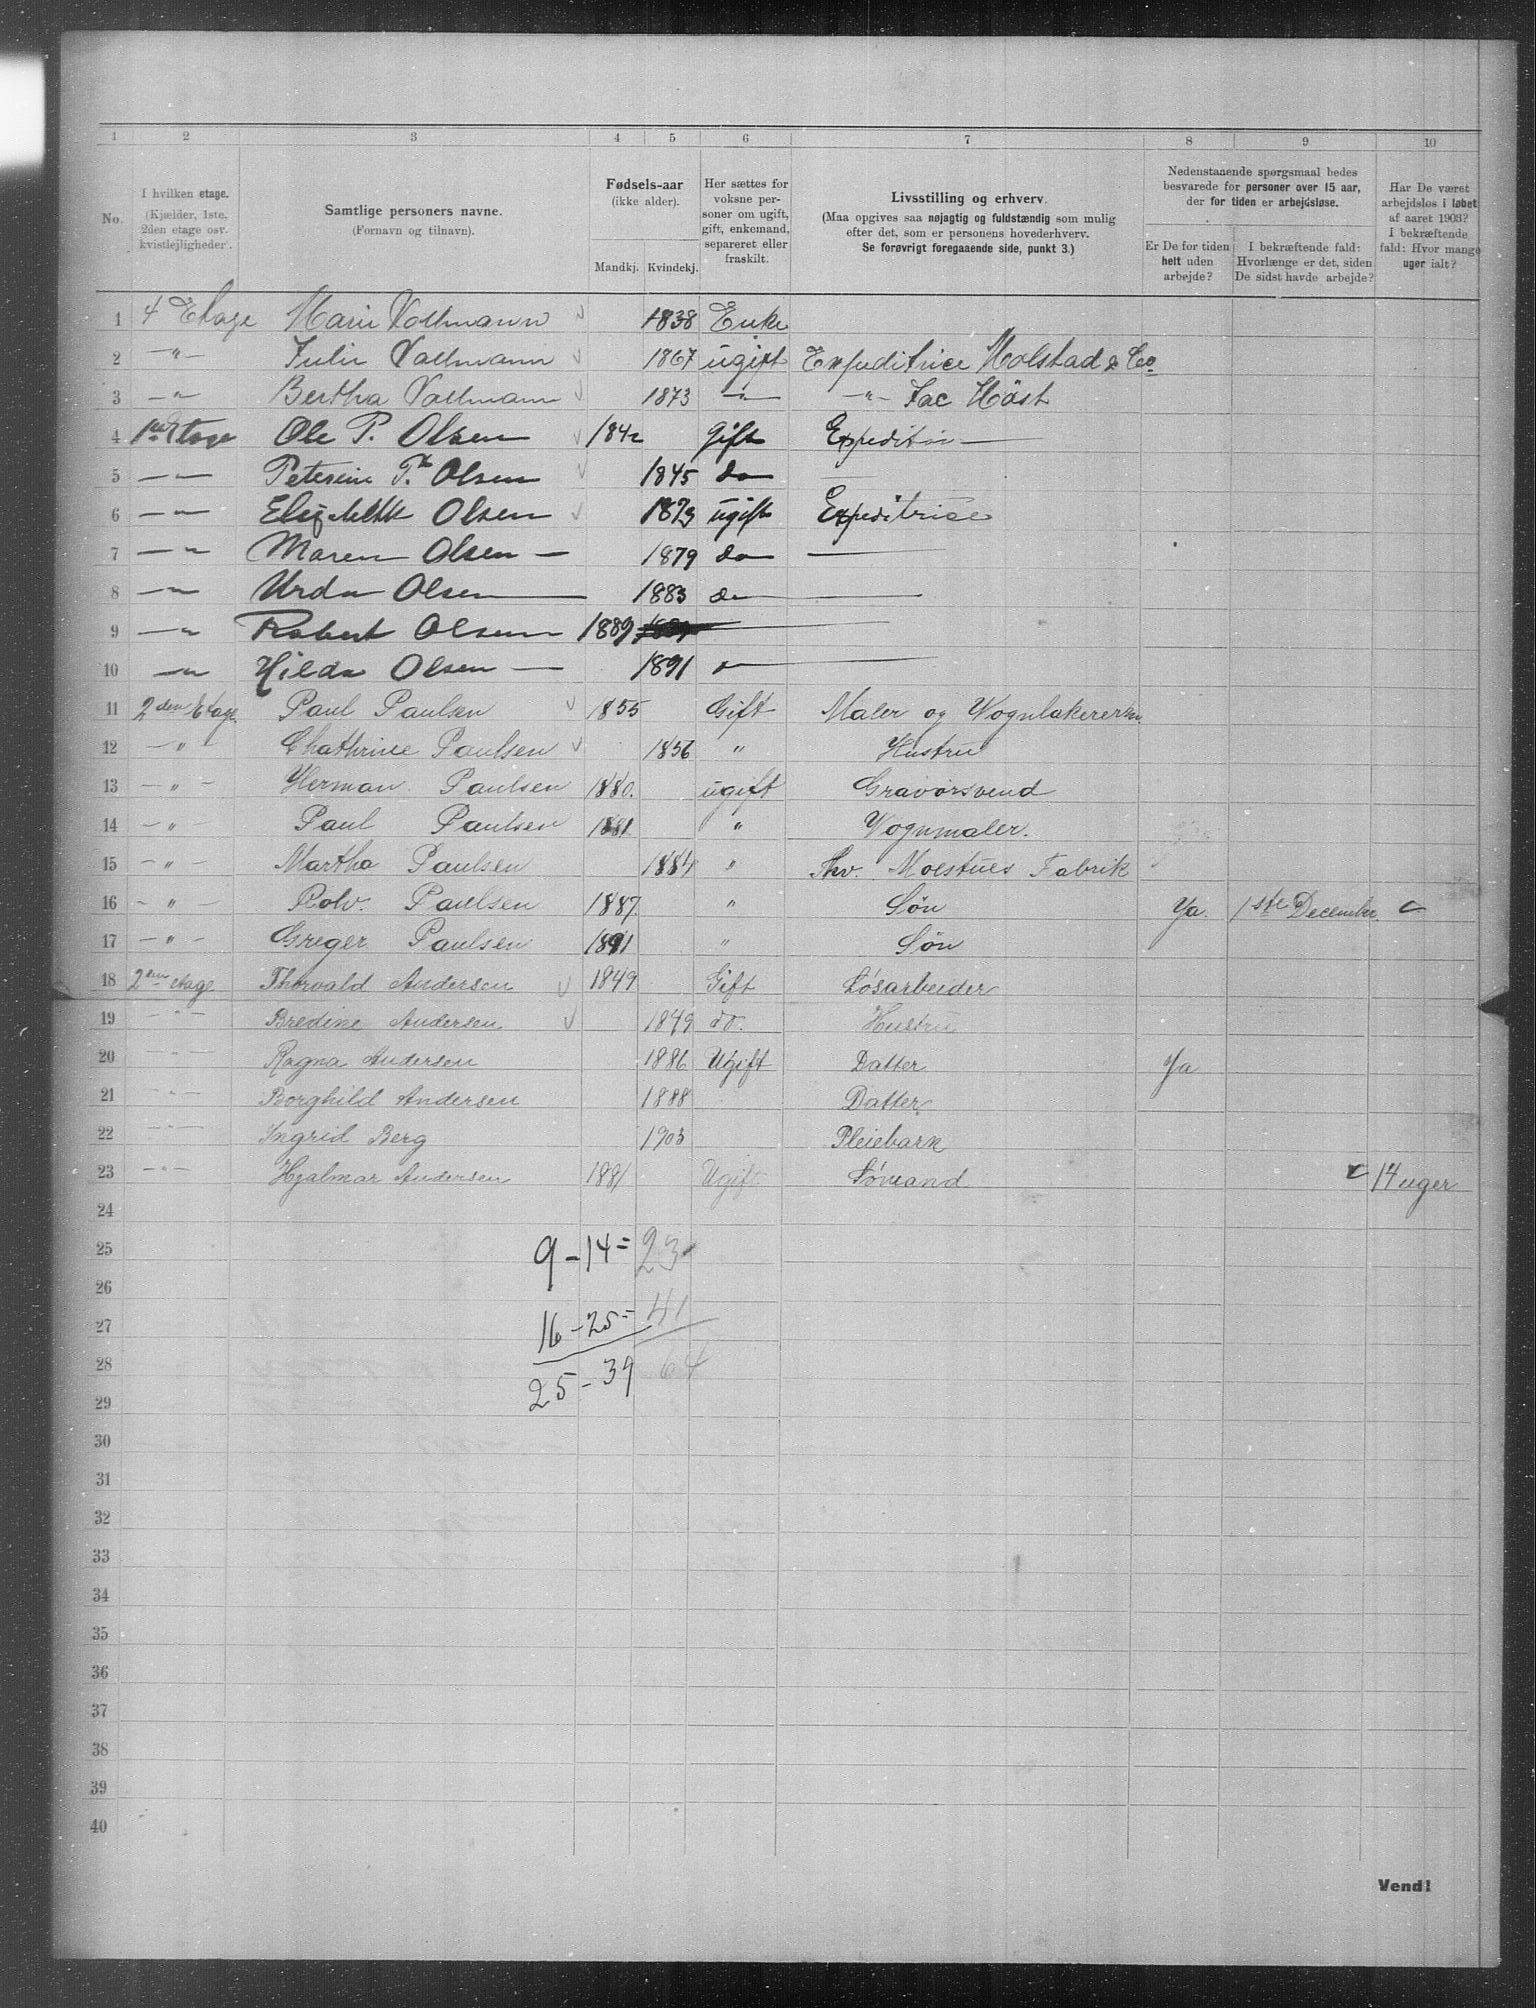 1 2 3 4 5 6 7 8 9 10
No.
I hvilken etage.
(Kjælder, 1ste,
2den etage osv.
kvistlejligheder).
Samtlige personers navne.
(Fornavn og tilnavn).
Fødsels-aar
(ikke alder).
Mandkj. Kvindekj.
Her sættes for
voksne per-
soner om ugift,
gift, enkemand,
separeret eller
fraskilt.
Livsstilling og erhverv.
(Maa opgives saa nøjagtig og fuldstændig som mulig
efter det, som er personens hovederhverv.
Se forøvrigt foregaaende side, punkt 3.)
Nedenstaaende spørgsmaal bedes
besvarede for personer over 15 aar,
der for tiden er arbejdsløse.
Er De for tiden
helt uden
arbejde?
I bekræftende fald:
Hvorlænge er det, siden
De sidst havde arbejde?
Har De været
arbejdsløs i løbet
af aaret 1903?
I bekræftende
fald: Hvor mange
uger ialt?
1 4 Etage Marie Vollmann 1838 Enke
2 -"- Julie Vollmann 1867 ugift Expeditrice Molstad & Co
3 -"- Bertha Vollmann 1873 -"- -"- Jac Höst
4 1ste Etage Ole P. Olsen 1842 Gift Expeditør
5 -"- Petersine P. Olsen 1845 do
6 -"- Elisabeth Olsen 1873 ugift Expeditrice
7 -"- Maren Olsen 1879 do
8 -"- Urda Olsen 1883 do
9 -"- Robert Olsen 1889
10 -"- Hilda Olsen 1891
11 2den Etage Paul Paulsen 1855 Gift Maler og Vognlakerer
12 -"- Chathrine Paulsen 1856 " Hustru
13 -"- Herman Paulsen 1880. ugift Gravørsvend
14 -"- Paul Paulsen 1881 " Vognmaler.
15 -"- Martha Paulsen 1884 " Moestues Fabrik
16 -"- Rolv. Paulsen 1887. " Søn Ja. 1ste December
17 -"- Greger Paulsen 1891 " Søn
18 2en etage Thorvald Andersen 1849 Gift Løsarbeider
19 -"- Bredine Andersen 1849 do. Hustru
20 -"- Ragna Andersen 1886 Ugift Datter Ja
21 -"- Borghild Andersen 1888 Datter
22 -"- Ingrid Berg 1903 Pleiebarn
23 -"- Hjalmar Andersen 1881 Ugift Sømand 14 uger
24
25 9-14=23
26
27 16-25=41
28 25-39 64
29
30
31
32
33
34
35
36
37
38
39
40
Vend!